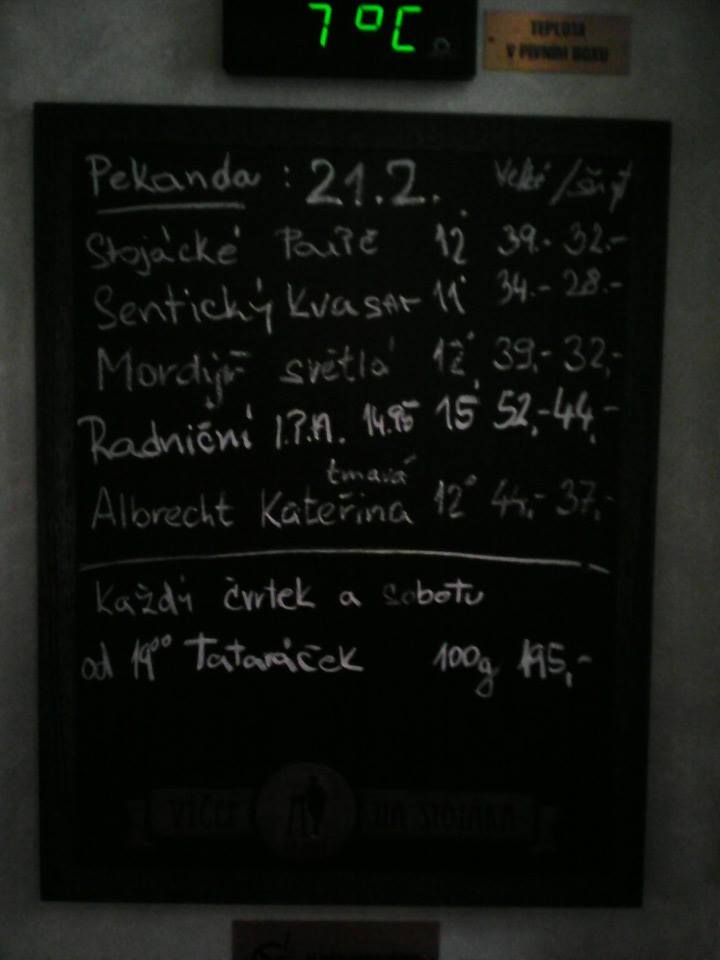 7°C
TEPLOTA
V PIVNÍM BOXU
Pekanda : 21.2. velké / šnyt
Stojácké Paiřč 12° 39.- 32.-
Sentický Kvasar 11° 34.- 28.-
Mordýř světlá 12° 39,- 32,-
Radniční I.P.A. 14.95 15° 52,- 44,-
tmavá
Albrecht Kateřina 12° 44,- 37,-
Každý čvrtek a sobotu
od 19⁰⁰ Tataráček 100g 195,-
VÝČEP NA STOJÁKA